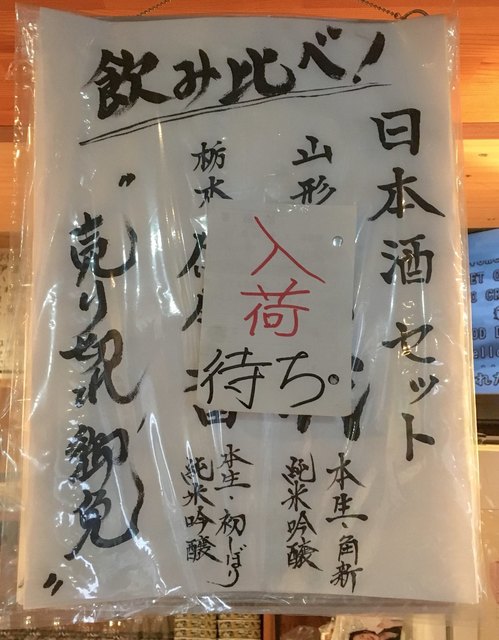 飲み比べ!
日本酒セット
山形
本生・角新
純米吟醸
栃木
本生・初しぼり
純米吟醸
入荷
待ち。
"売り切れ御免"